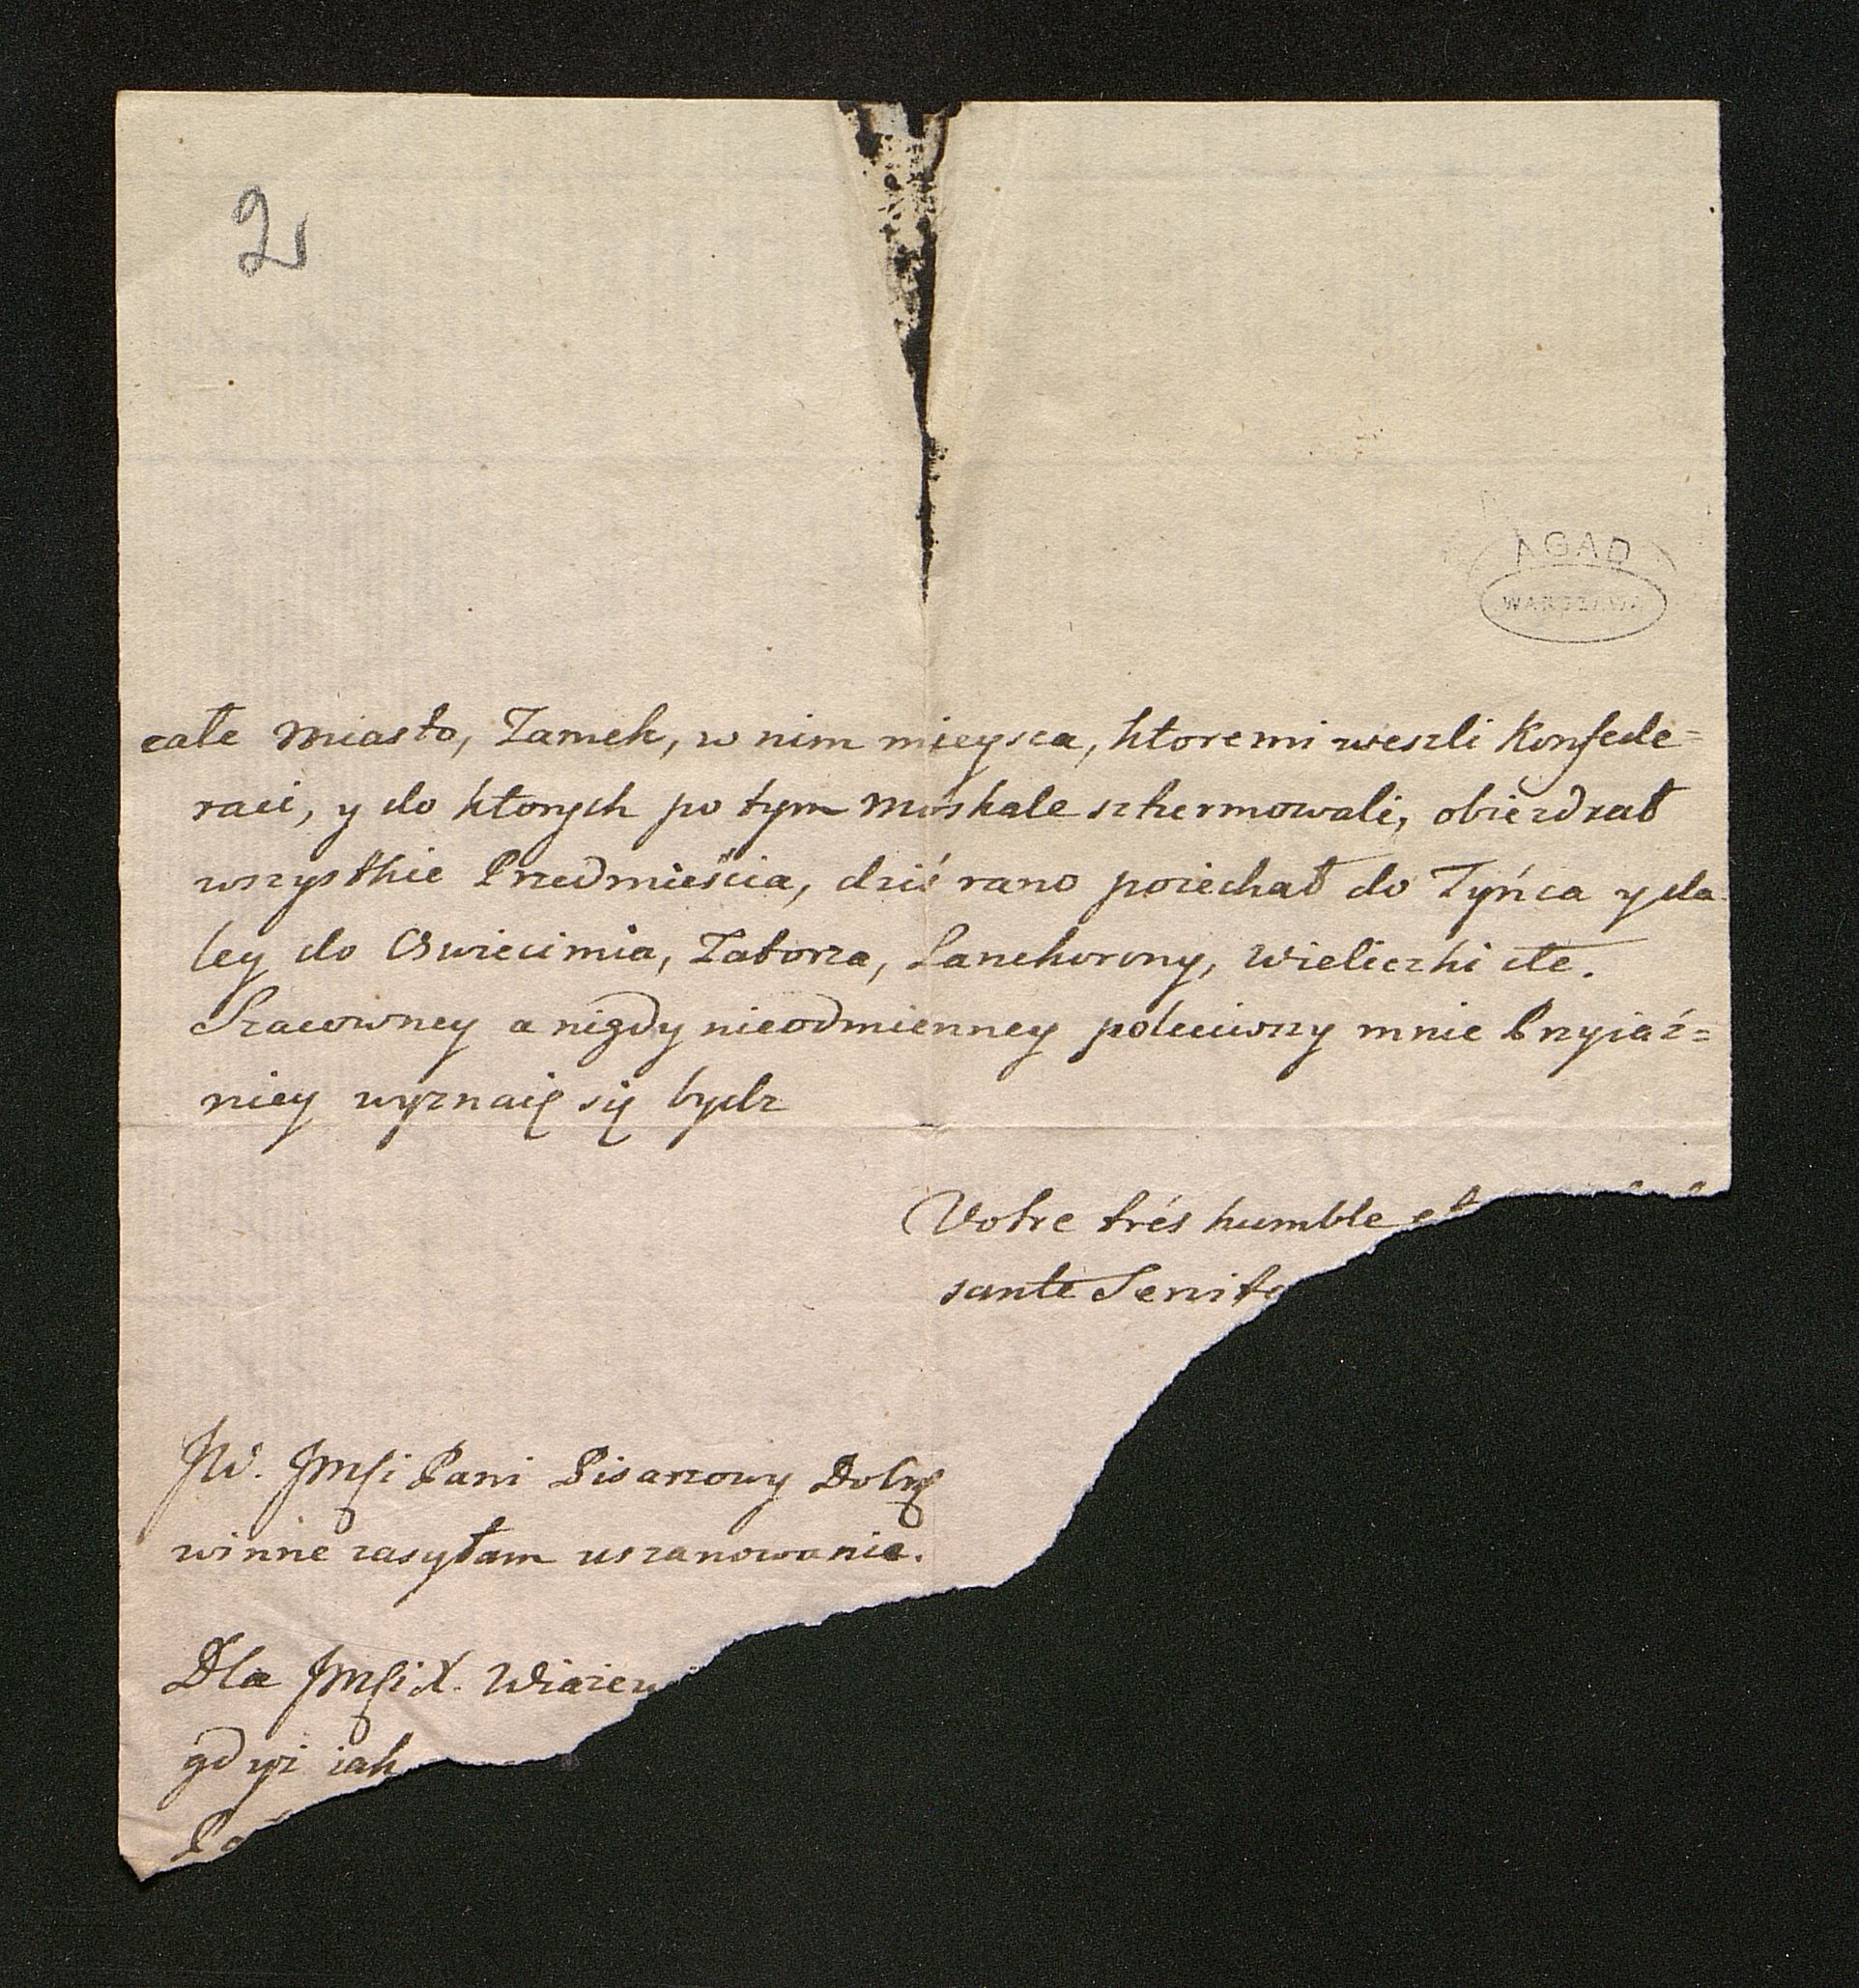 2
AGAD
WARSZAWA
całe Miasto, Zamek, w nim mieysca, ktoremi weszli Konfede=
raci, y do ktorych po tym Moskale szturmowali, obiezdzał
wszystkie Przedmieścia, dziś rano poiechał do Tyńca y da
ley do Oswiecimia, Zatorza, Lanckorony, Wieliczki etc.
Szacowney a nigdy nieodmienney poleciwszy mnie Przyiaź=
niey wyznaię się bydz
Votre trés humble et
sante Servito
JW. Jmsci Pani Pisarzowy Dobrę
winne zasyłam uszanowanie.
Dla Jmsci X.
gdyż iak